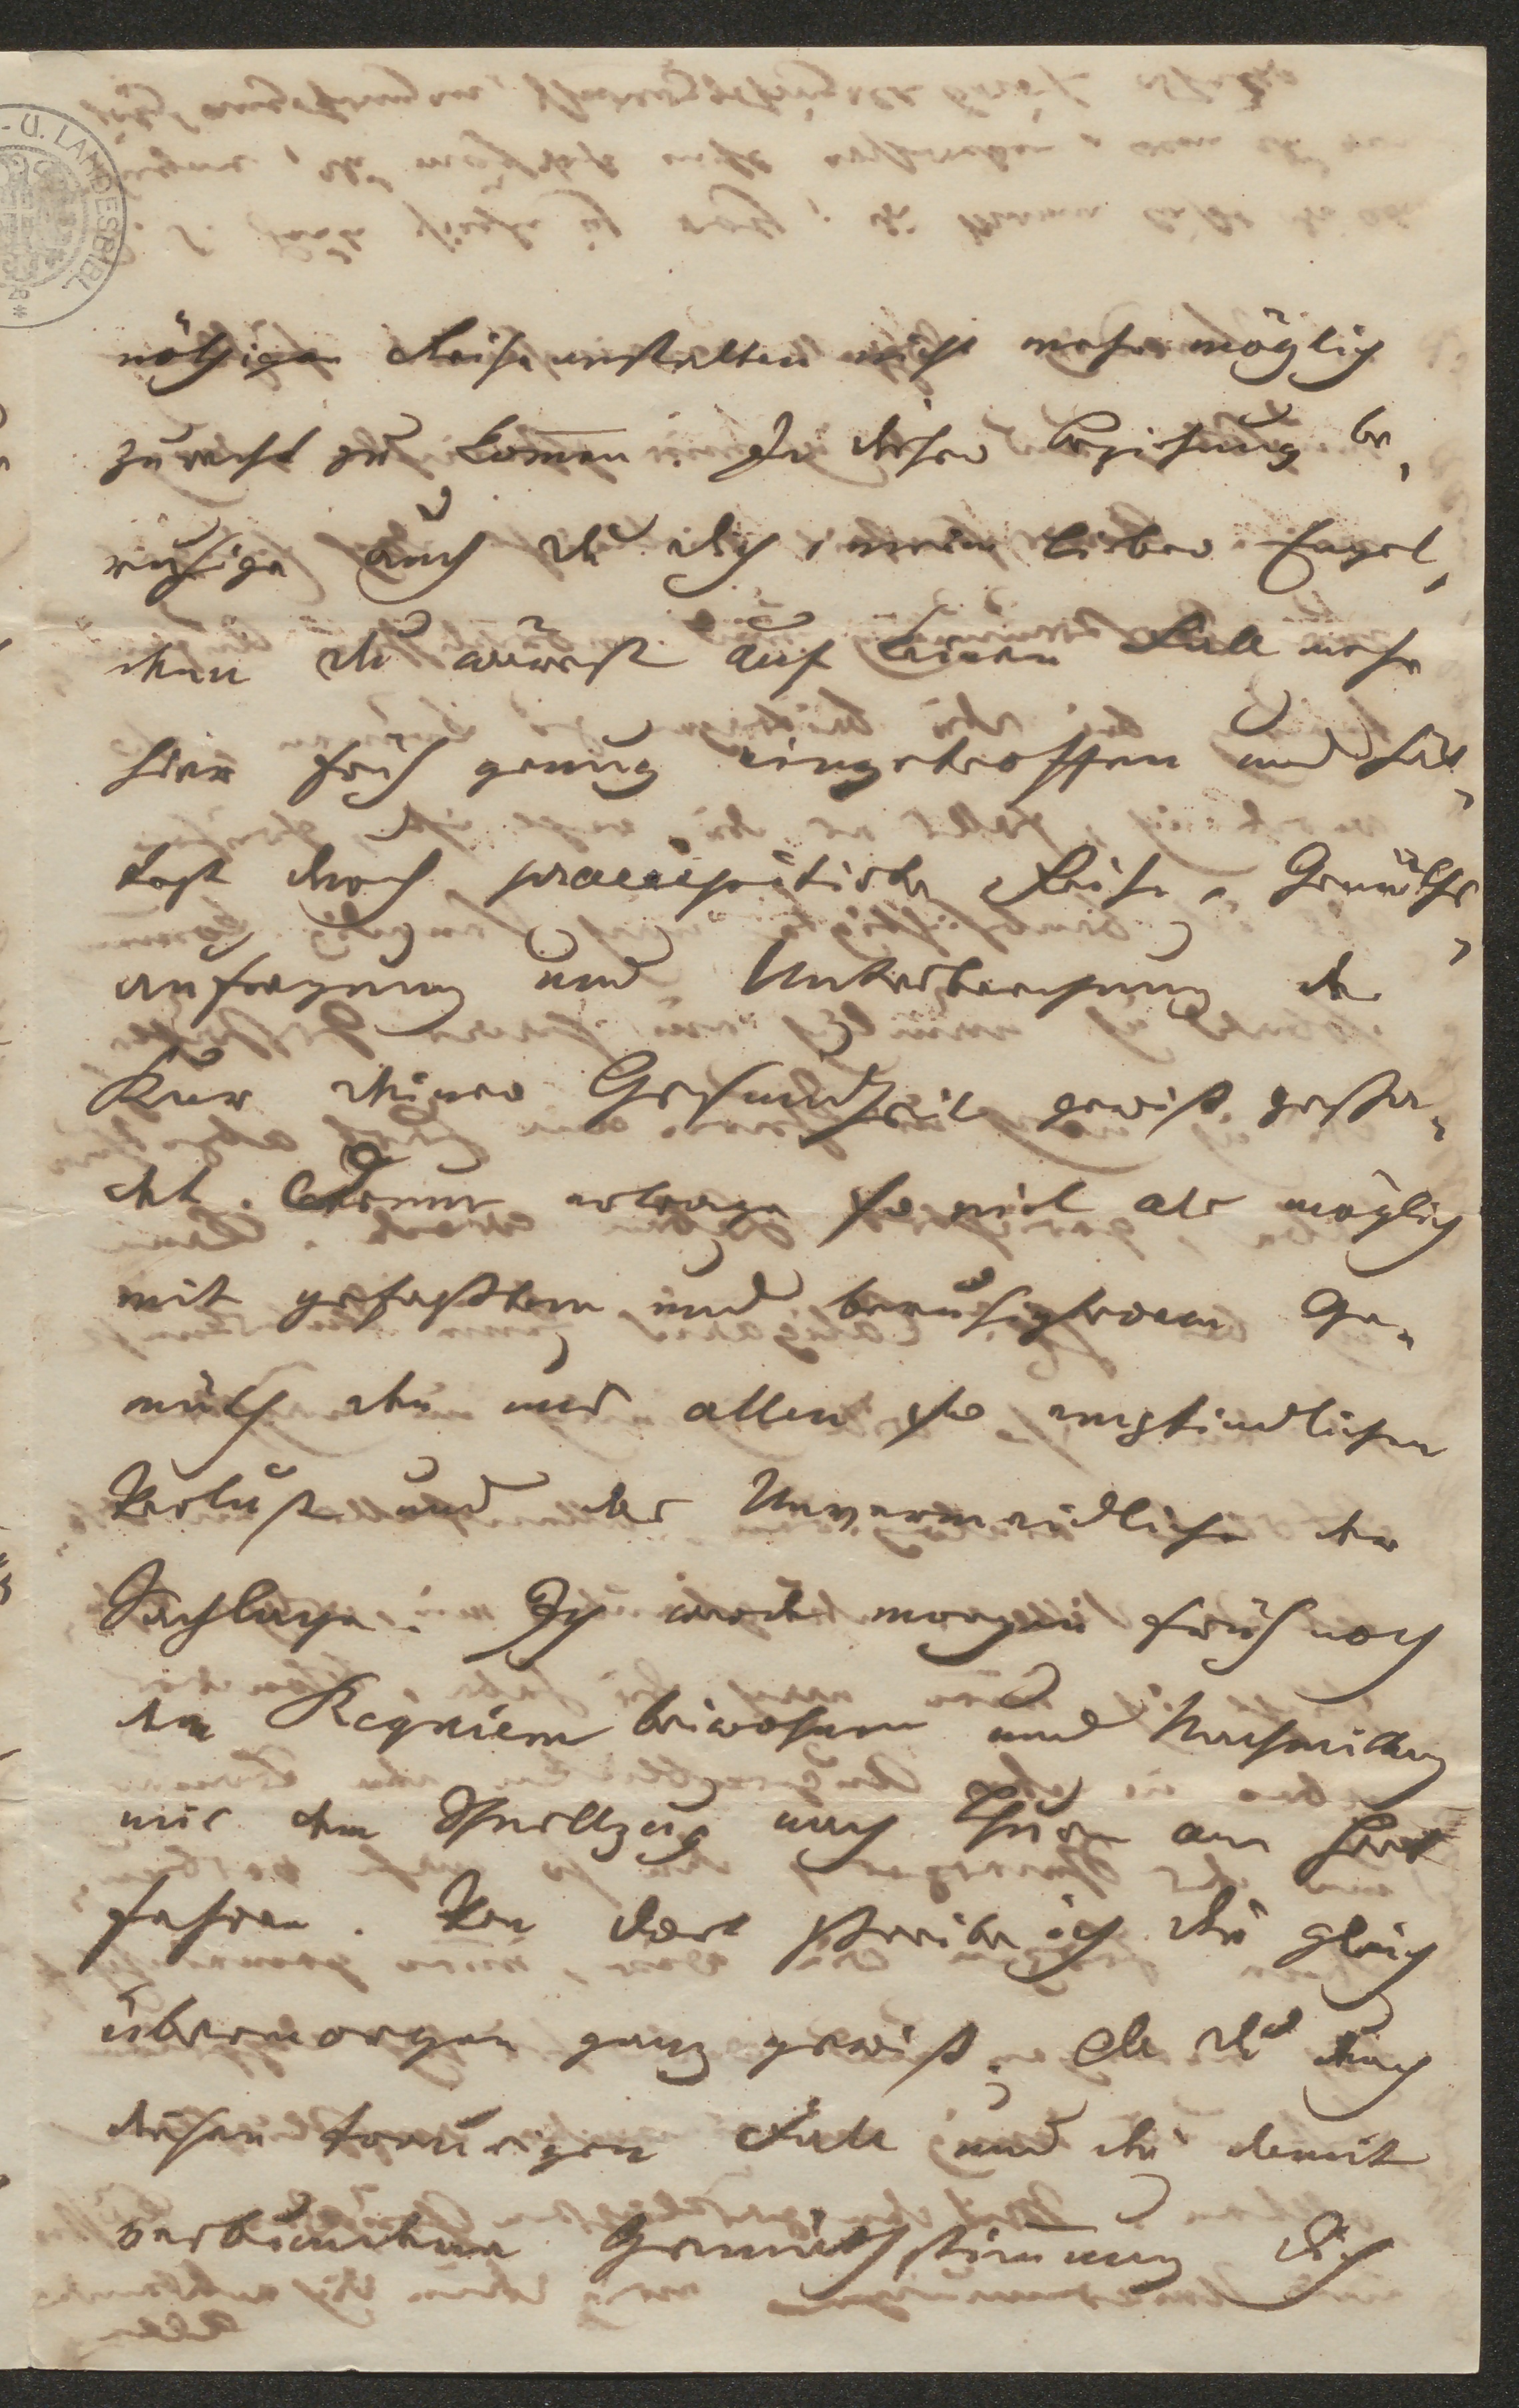 - U. LANDESBIBL.
nöthigen Reiseanstalten nicht mehr möglich
zurecht zu kom̄en. In dieser Beziehung be,
ruhige auch Du Dich, mein lieber Engel,
denn Du wärest auf keinen Fall mehr
hier früh genug eingetroffen und hät,
test durch praecipitirte Reise, Gemüths,
aufregung und Unterbrechung der
Kur Deiner Gesundheit gewiß gescha,
det. Darum ertrage so viel als möglich
mit gefaßtem und beruhigterem Ge,
müth den uns allen so empfindlichen
Verlust und das Unvermeidliche der
Sachlage. Ich werde morgen früh noch
dem Requiem beiwohnen und Nachmittag
mit dem Schnellzug nach Thurn am Hart
fahren. Von dort schreibe ich Dir gleich
übermorgen ganz gewiß. Da Du durch
diesen traurigen Fall und die damit
verbundene Gemüthsstim̄ung Dich